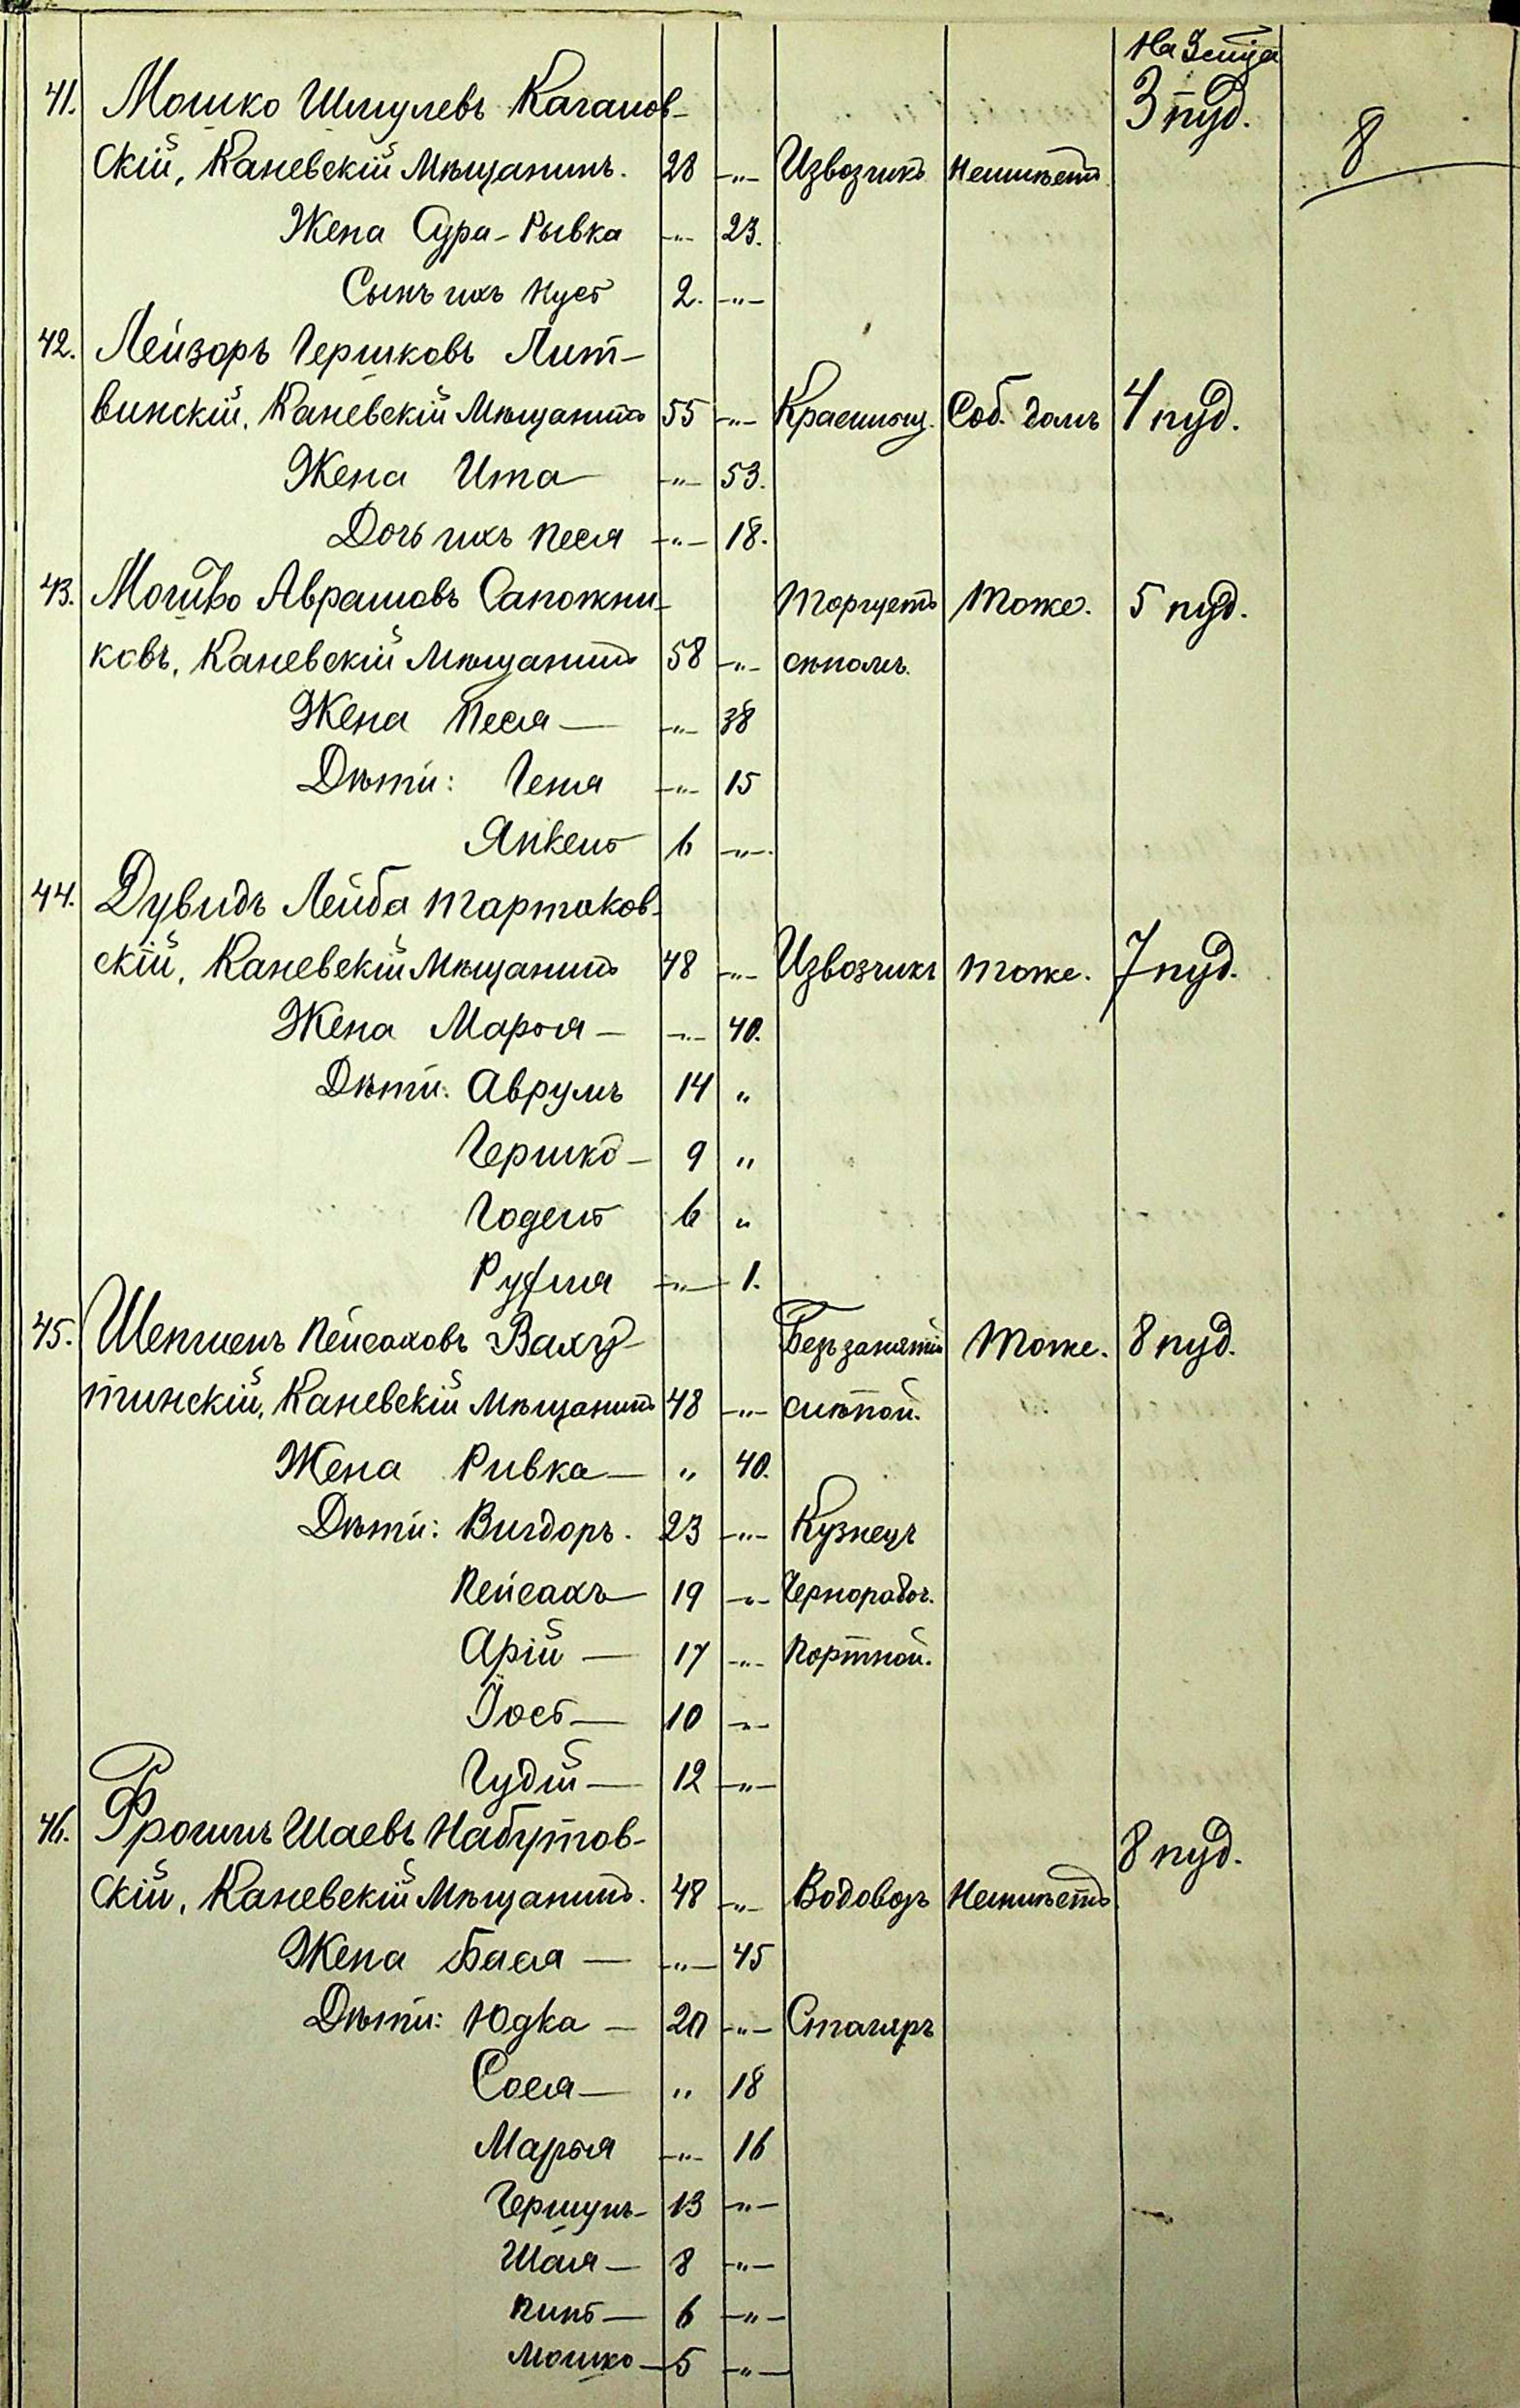 На Зейца
41. Мошко Шмулевъ Каганов- 3 пуд. 8
скій, Каневскій Мѣщанинъ. 28 -"- Извозчикъ Неимѣетъ
Жена Сура-Рывка -"- 23.
Сынъ ихъ Нусъ 2. -"-
42. Лейзоръ Гершковъ Лит-
винскій, Каневскій Мѣщанинъ 55 -"- Соб. домъ 4 пуд.
Жена Ита -"- 53.
Дочь ихъ Песя -"- 18.
43. Мошко Аврамовъ Сапожни- Торгуетъ Тоже. 5 пуд.
ковъ, Каневскій Мѣщанинъ 58 -"- сѣномъ.
Жена Песя — -"- 38
Дѣти: Геня -"- 15
Янкель 6 -"-
44. Дувидъ Лейба Тартаков-
скій, Каневскій Мѣщанинъ 48 -"- Извозчикъ Тоже. 7 пуд.
Жена Марья — -"- 40.
Дѣти: Аврумъ 14 "
Гершко — 9 "
Годель 6 "
Руфля -"- 1.
45. Шепшель Пейсаховъ Ваху- Безъ занятій Тоже. 8 пуд.
тинскій, Каневскій Мѣщанинъ 48 -"- слѣпой.
Жена Ривка — " 40.
Дѣти: Вигдоръ. 23 -"- Кузнецъ
Пейсахъ — 19 -"- Чернорабоч.
Арій — 17 -"- Портной.
Йосъ — 10 -"-
Гудій — 12 -"-
46. Фроимъ Шаевъ Набутов- 8 пуд.
скій, Каневскій Мѣщанинъ. 48 -"- Водовозъ Неимѣетъ
Жена Бася — -"- 45
Дѣти: Юдка — 20 -"- Столяръ
Сося — " 18
Марья -"- 16
Гершунъ — 13 -"-
Шая — 8 -"-
Пинъ — 6 -"-
Мошко — 5 -"-